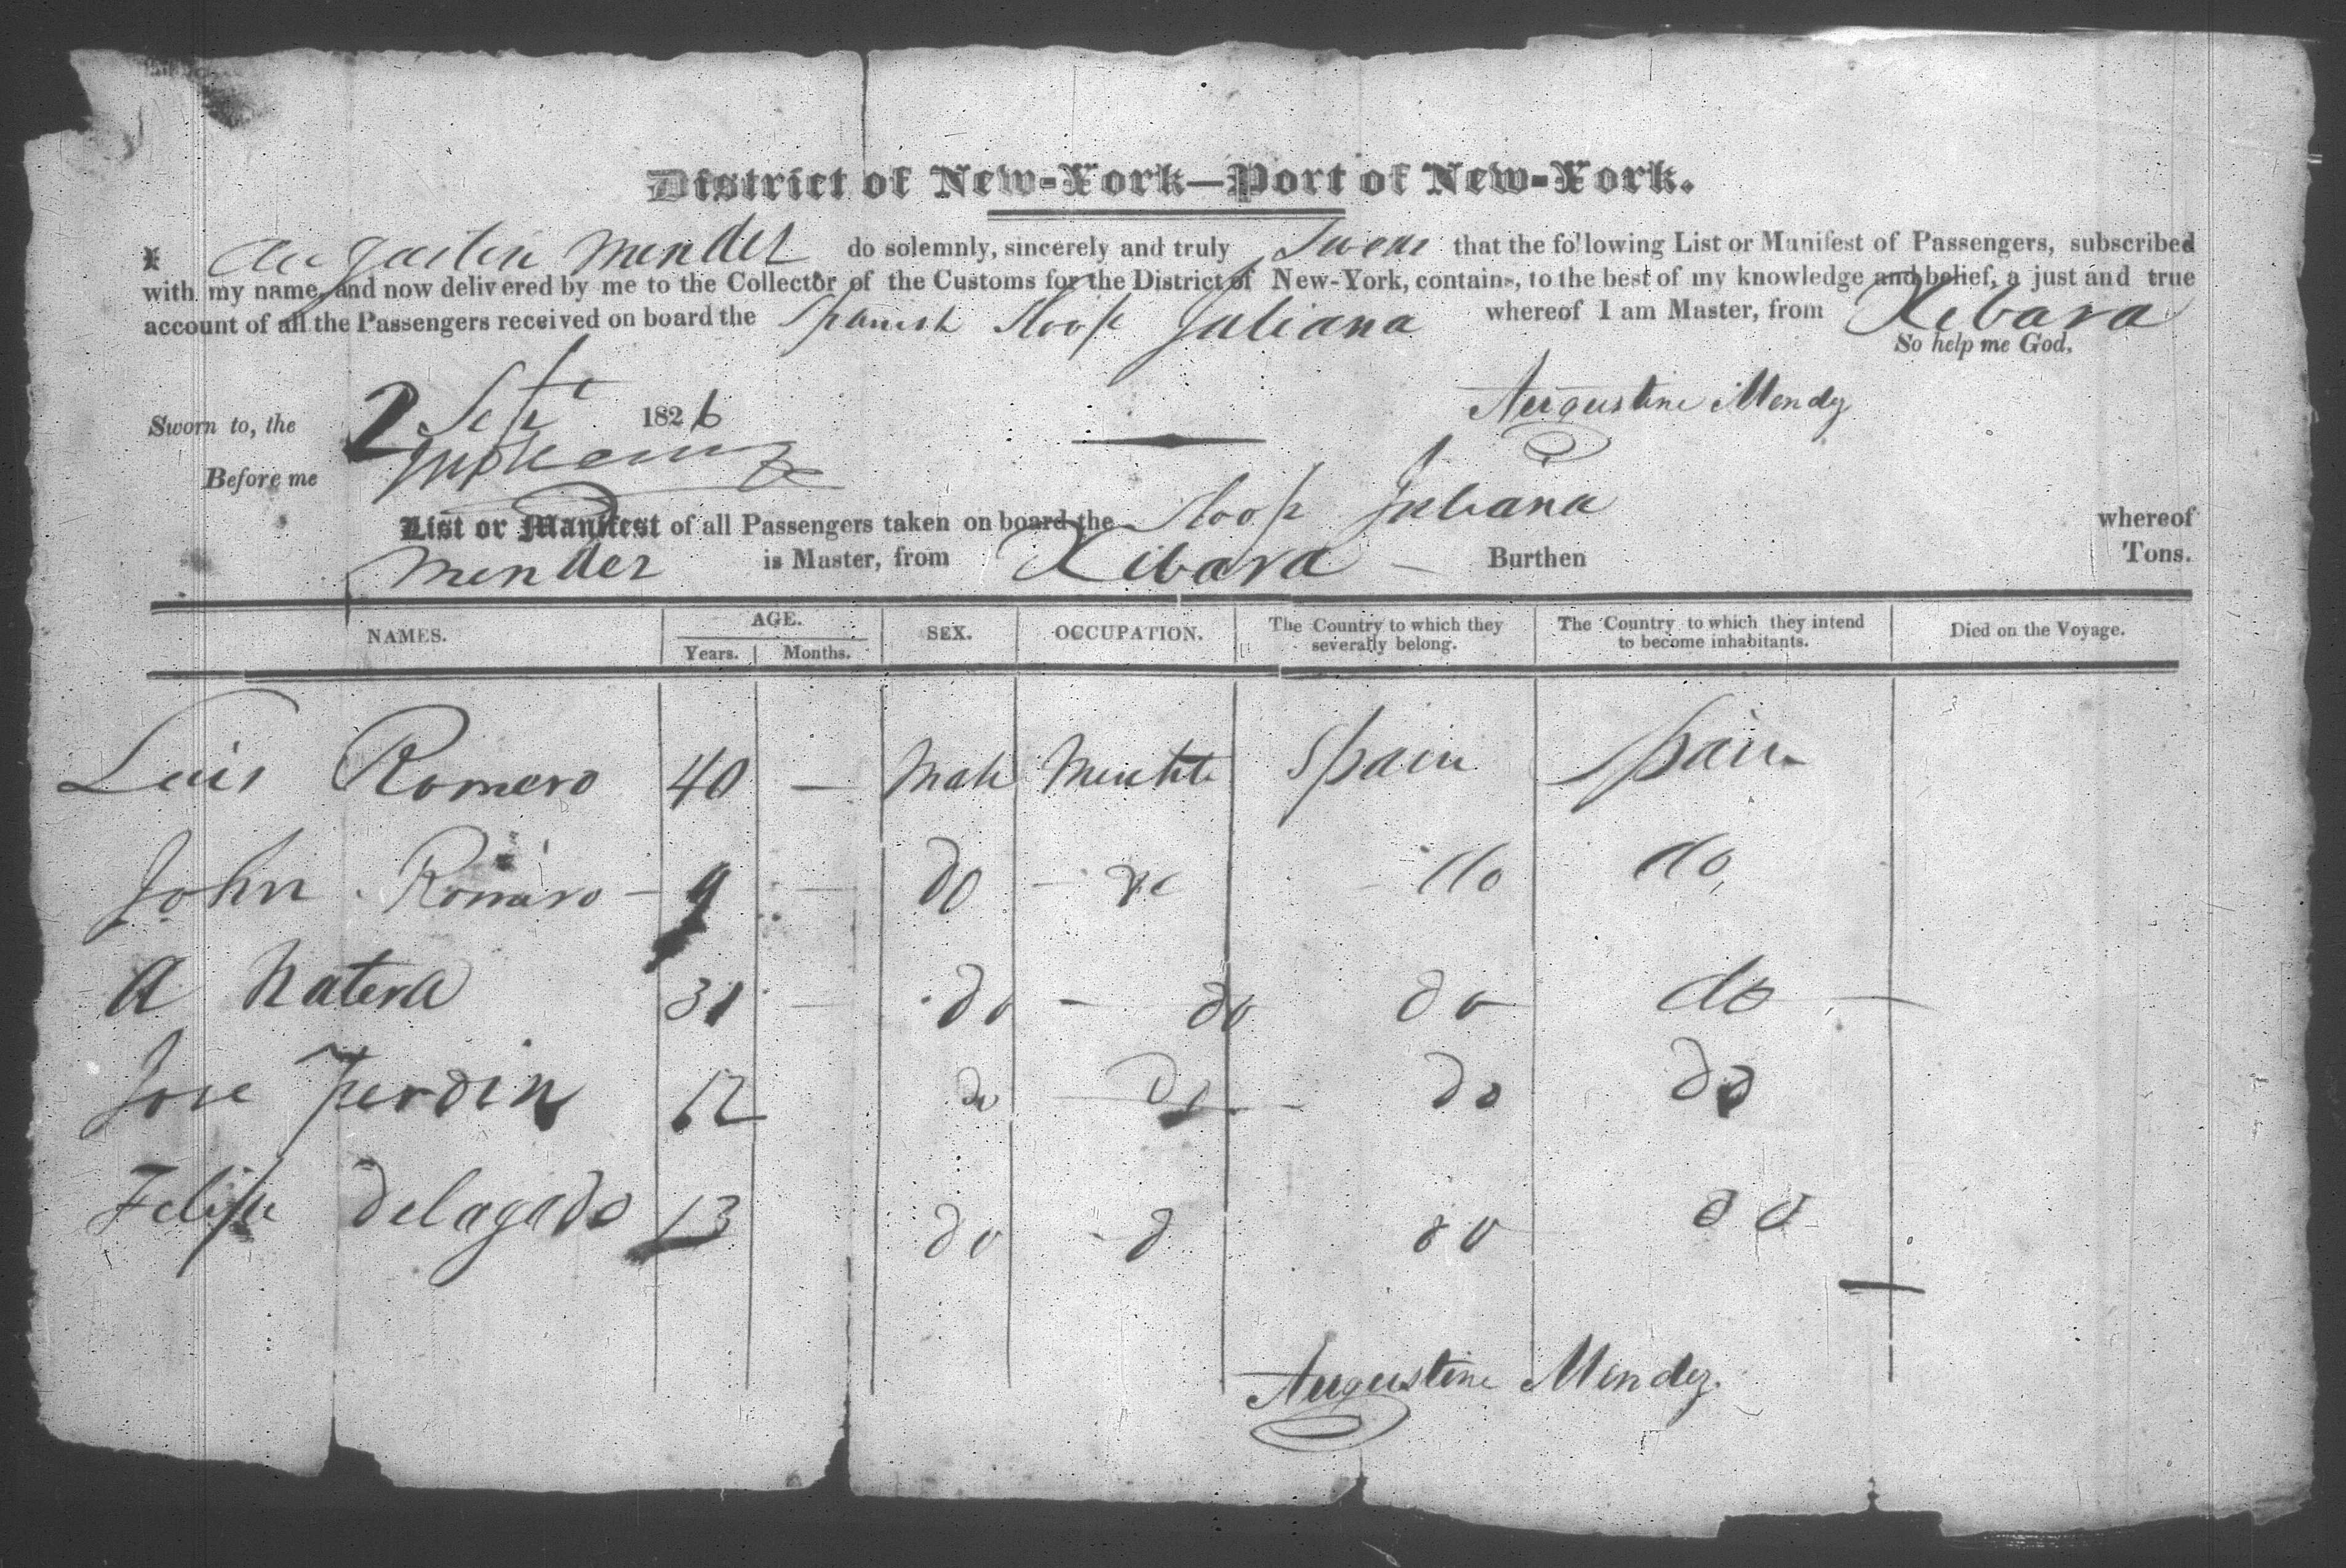 District of New-York—Port of New-York.
I Augustin Mendez do solemnly, sincerely and truly Swear that the following List or Manifest of Passengers, subscribed
with my name, and now delivered by me to the Collector of the Customs for the District of New-York, contains, to the best of my knowledge and belief, a just and true
account of all the Passengers received on board the Spanish Sloop Juliana whereof I am Master, from Xebara
So help me God,
Sworn to, the 2 Sept 1826 Augustine Mendez
Before me
List or Manifest of all Passengers taken on board the Sloop Juliana whereof
Mendez is Master, from Xibara Burthen Tons.
NAMES. AGE. SEX. OCCUPATION. The Country to which they severally belong. The Country to which they intend to become inhabitants. Died on the Voyage.
Years. Months.
Luis Romero 40 — Male Spain Spain
John Romero — 9 — do do do
A Natera 31 — do — do do do
Jose 12 do do do do
Felipe Delagado 13 do - d do do
Augustine Mendez.